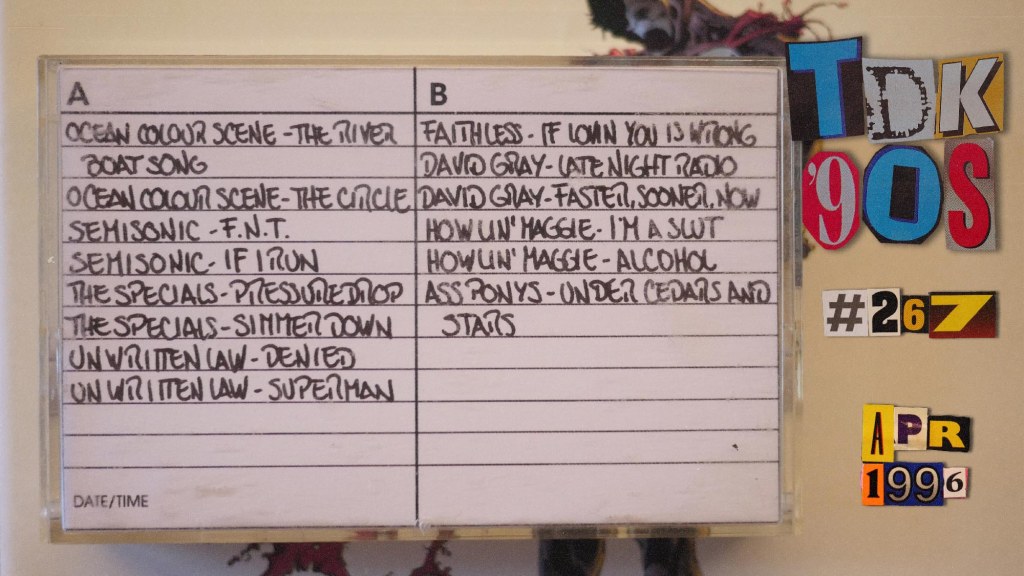 A
OCEAN COLOUR SCENE - THE RIVER
BOAT SONG
OCEAN COLOUR SCENE - THE CIRCLE
SEMISONIC - F.N.T.
SEMISONIC - IF I RUN
THE SPECIALS - PRESSURE DROP
THE SPECIALS - SIMMER DOWN
UNWRITTEN LAW - DENIED
UNWRITTEN LAW - SUPERMAN
DATE/TIME
B
FAITHLESS - IF LOVIN YOU IS WRONG
DAVID GRAY - LATE NIGHT RADIO
DAVID GRAY - FASTER, SOONER, NOW
HOWLIN' MAGGIE - I'M A SLUT
HOWLIN' MAGGIE - ALCOHOL
ASS PONYS - UNDER CEDARS AND
STARS
TDK
'90S
#267
APR
1996